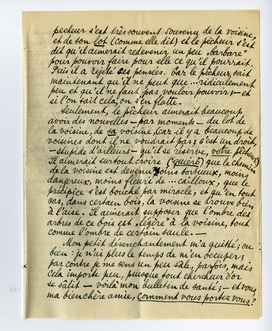 pêcheur s'est très souvent souvenu de la voisine,
et de son lot (comme elle dit) et le pêcheur s'est
dit qu'il aimerait redevenir un peu "barbare"
pour pouvoir faire pour elle ce qu'il pourrait.
Puis il a rejeté ses pensées. Car le pêcheur sait
maintenant qu'il ne peut que ... ridiculement
peu et qu'il ne faut pas vouloir pouvoir - et
si l'on fait cela, on s'en flatte.
Seulement, le pêcheur aimerait beaucoup
avoir des nouvelles - par moments - du lot de
la voisine, de sa voisine (car il y a beaucoup de
voisines dont il ne voudrait pas) c'est un droit,
- stupide d'ailleurs - qu'il se réserve, votre pêcheur.
Il aimerait surtout croire que le chemin
de la voisine est devenu moins bourbeux, moins
dangereux, moins fleuré de ... cailloux, que le
précipice s'est bouché par miracle, et qu'en tout
cas, dans certain bois, la voisine se trouve bien
à l'aise. Il aimerait supposer que l'ombre des
arbres de ce bois est légère à la voisine, tout
comme l'ombre de certain saule. -
Mon petit désenchantement m'a quitté; ou
bien: je n'ai plus le temps de m'en occuper;
par contre je me sens un peu sale, parfois, mais
cela importe peu, puisque tout chercheur d'or
se salit - voilà mon bulletin de santé; - et vous,
ma bien chère amie, comment vous portez vous?